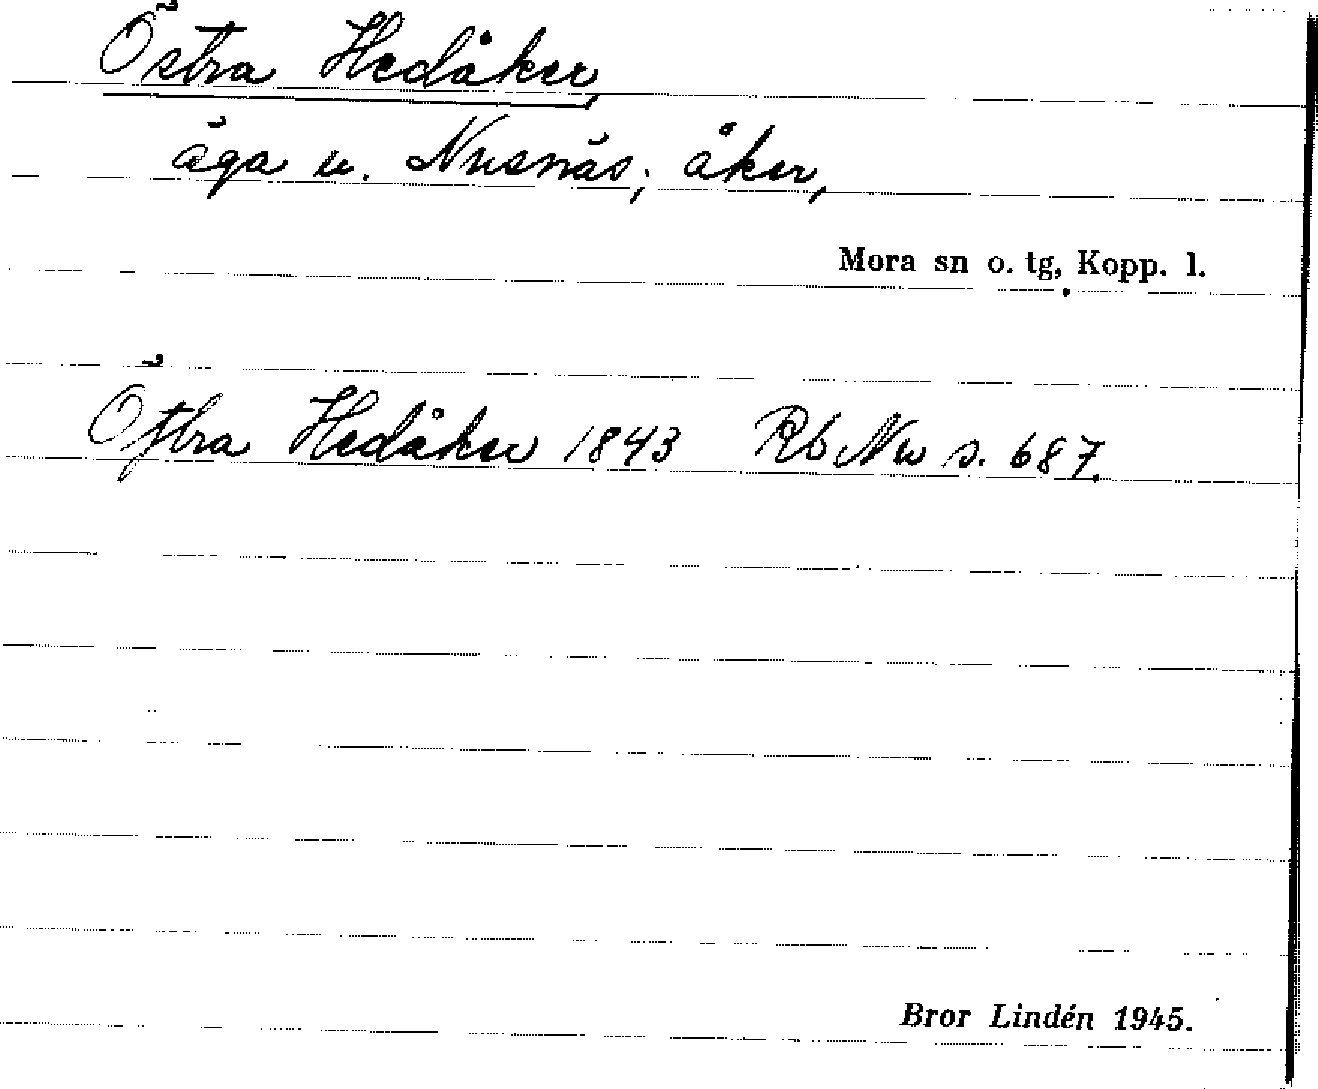 Östra Hedåker,
äga u. Nusnäs; åker,
Mora sn o. tg, Kopp. l.
Östra Hedåker 1843 Rb Nu s. 687.
Bror Lindén 1945.